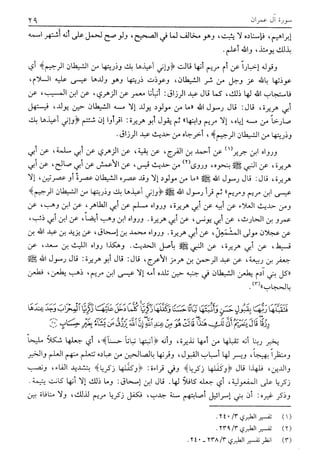 سورة آل عمران ٢٩
إبراهيم، فإسناده لا يثبت، وهو مخالف لما في الصحيح، ولو صح لحمل على أنه أشتهر اسمه
بذلك يومئذ، والله أعلم.
وقوله إخباراً عن أم مريم أنها قالت ﴿وإني أعيذها بك وذريتها من الشيطان الرجيم﴾ أي
عوذتها بالله عز وجل من شر الشيطان، وعوذت ذريتها وهو ولدها عيسى عليه السلام،
فاستجاب الله لها ذلك، كما قال عبد الرزاق: أنبأنا معمر عن الزهري، عن ابن المسيب، عن
أبي هريرة، قال: قال رسول الله ﷺ «ما من مولود يولد إلا مسه الشيطان حين يولد، فيستهل
صارخاً من مسه إياه، إلا مريم وابنها» ثم يقول أبو هريرة: اقرأوا إن شئتم ﴿وإني أعيذها بك
وذريتها من الشيطان الرجيم﴾، أخرجاه من حديث عبد الرزاق.
ورواه ابن جرير(١) عن أحمد بن الفرج، عن بقية، عن الزهري عن أبي سلمة، عن أبي
هريرة، عن النبي ﷺ بنحوه، وروى(٢) من حديث قيس، عن الأعمش، عن أبي صالح، عن أبي
هريرة، قال: قال رسول الله ﷺ «ما من مولود إلا وقد عصره الشيطان عصرة أو عصرتين، إلا
عيسى ابن مريم ومريم» ثم قرأ رسول الله ﷺ ﴿وإني أعيذها بك وذريتها من الشيطان الرجيم﴾
ومن حديث العلاء عن أبيه عن أبي هريرة، ورواه مسلم عن أبي الطاهر، عن ابن وهب، عن
عمرو بن الحارث، عن أبي يونس، عن أبي هريرة. ورواه ابن وهب أيضاً، عن ابن أبي ذئب،
عن عجلان مولى المشمعل، عن أبي هريرة. ورواه محمد بن إسحاق، عن يزيد بن عبد الله بن
قسيط، عن أبي هريرة، عن النبي ﷺ بأصل الحديث. وهكذا رواه الليث بن سعد، عن
جعفر بن ربيعة، عن عبد الرحمن بن هرمز الأعرج، قال: قال أبو هريرة: قال رسول الله ﷺ
«كل بني آدم يطعن الشيطان في جنبه حين تلده أمه إلا عيسى ابن مريم، ذهب يطعن، فطعن
بالحجاب»(٣).
فَتَقَبَّلَهَا رَبُّهَا بِقَبُولٍ حَسَنٍ وَأَنْبَتَهَا نَبَاتًا حَسَنًا وَكَفَّلَهَا زَكَرِيَّا كُلَّمَا دَخَلَ عَلَيْهَا زَكَرِيَّا الْمِحْرَابَ وَجَدَ عِنْدَهَا
رِزْقًا قَالَ يَا مَرْيَمُ أَنَّى لَكِ هَذَا قَالَتْ هُوَ مِنْ عِنْدِ اللَّهِ إِنَّ اللَّهَ يَرْزُقُ مَنْ يَشَاءُ بِغَيْرِ حِسَابٍ
يخبر ربنا أنه تقبلها من أمها نذيرة، وأنه ﴿أنبتها نباتاً حسناً﴾، أي جعلها شكلاً مليحاً
ومنظراً بهيجاً، ويسر لها أسباب القبول، وقرنها بالصالحين من عباده تتعلم منهم العلم والخير
والدين، فلهذا قال ﴿وكفلها زكريا﴾ وفي قراءة: ﴿وكفّلها زكريا﴾ بتشديد الفاء، ونصب
زكريا على المفعولية، أي جعله كافلاً لها. قال ابن إسحاق: وما ذلك إلا أنها كانت يتيمة.
وذكر غيره: أن بني إسرائيل أصابتهم سنة جدب، فكفل زكريا مريم لذلك، ولا منافاة بين
(١) تفسير الطبري ٣/ ٢٤٠.
(٢) تفسير الطبري ٣/ ٢٣٩.
(٣) انظر تفسير الطبري ٣/ ٢٣٨ - ٢٤٠.